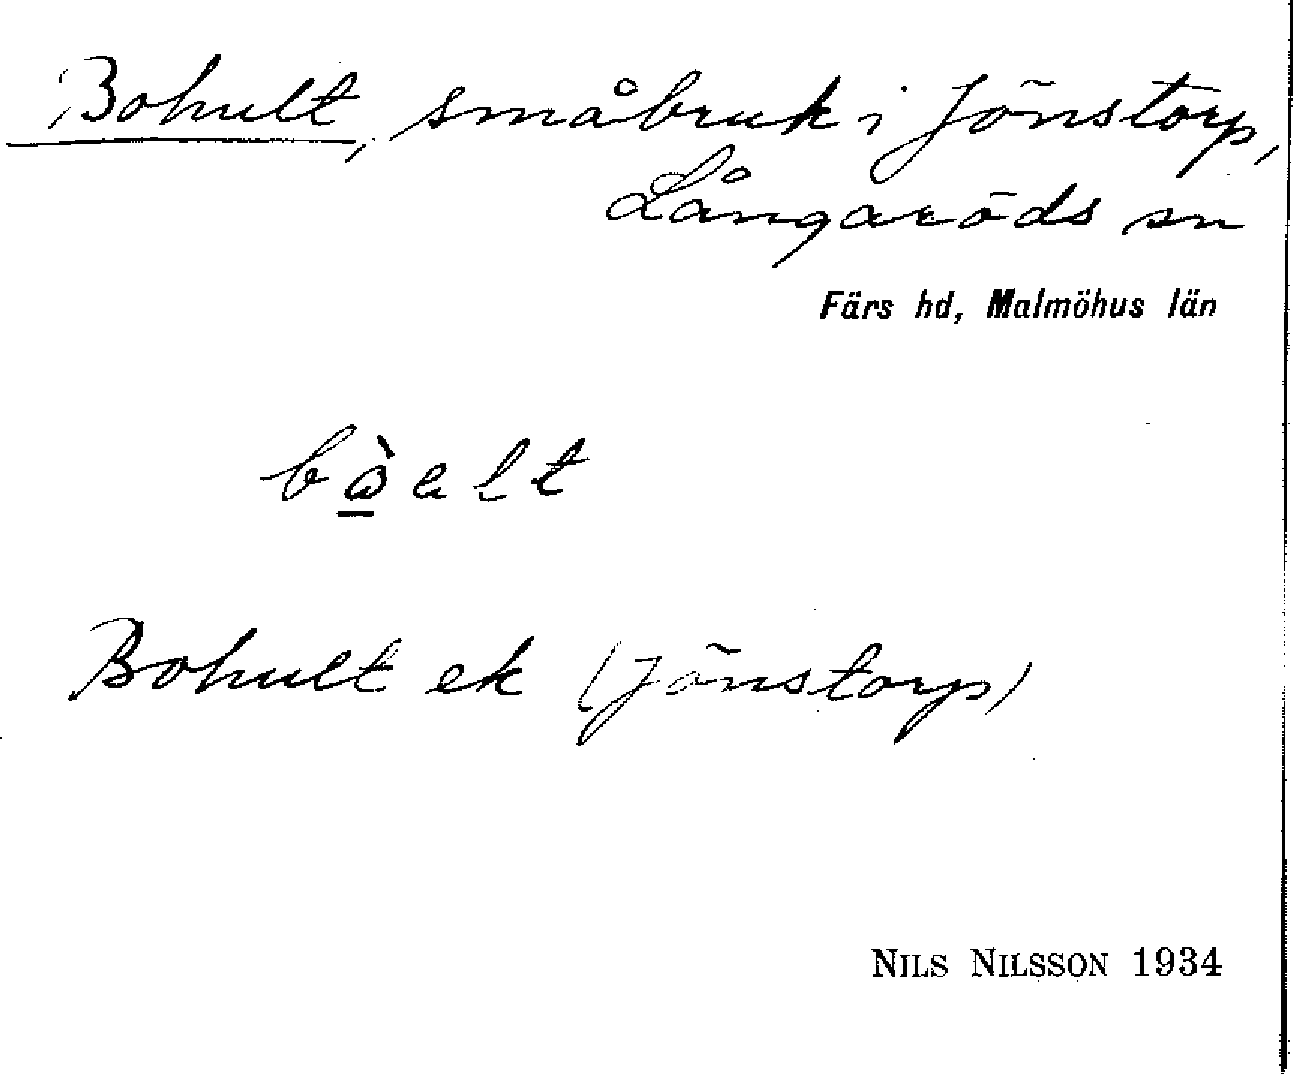 Bohult, småbruk i Jönstorp,
Långaröds sn
Färs hd, Malmöhus län
Bohult ek (Jönstorp)
NILS NILSSON 1934